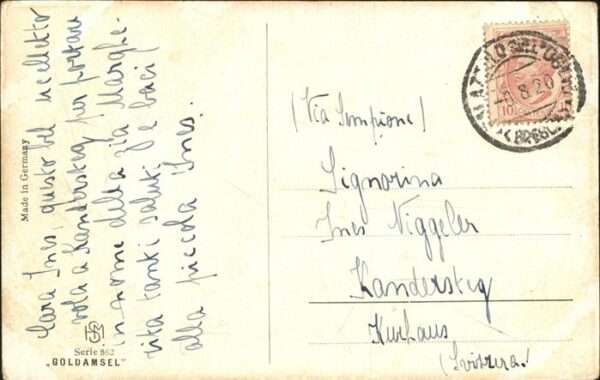 Cara Ines, questo bel uccelletto
vola a Kandersteg per portare
in nome della zia Marghe-
rita tanti saluti e baci
alla piccola Ines.
Made in Germany
Serie 862
"GOLDAMSEL"
(Via Sempione)
Signorina
Ines Niggeler
Kandersteg
Kurhaus
(Svizzera!
8.20
10